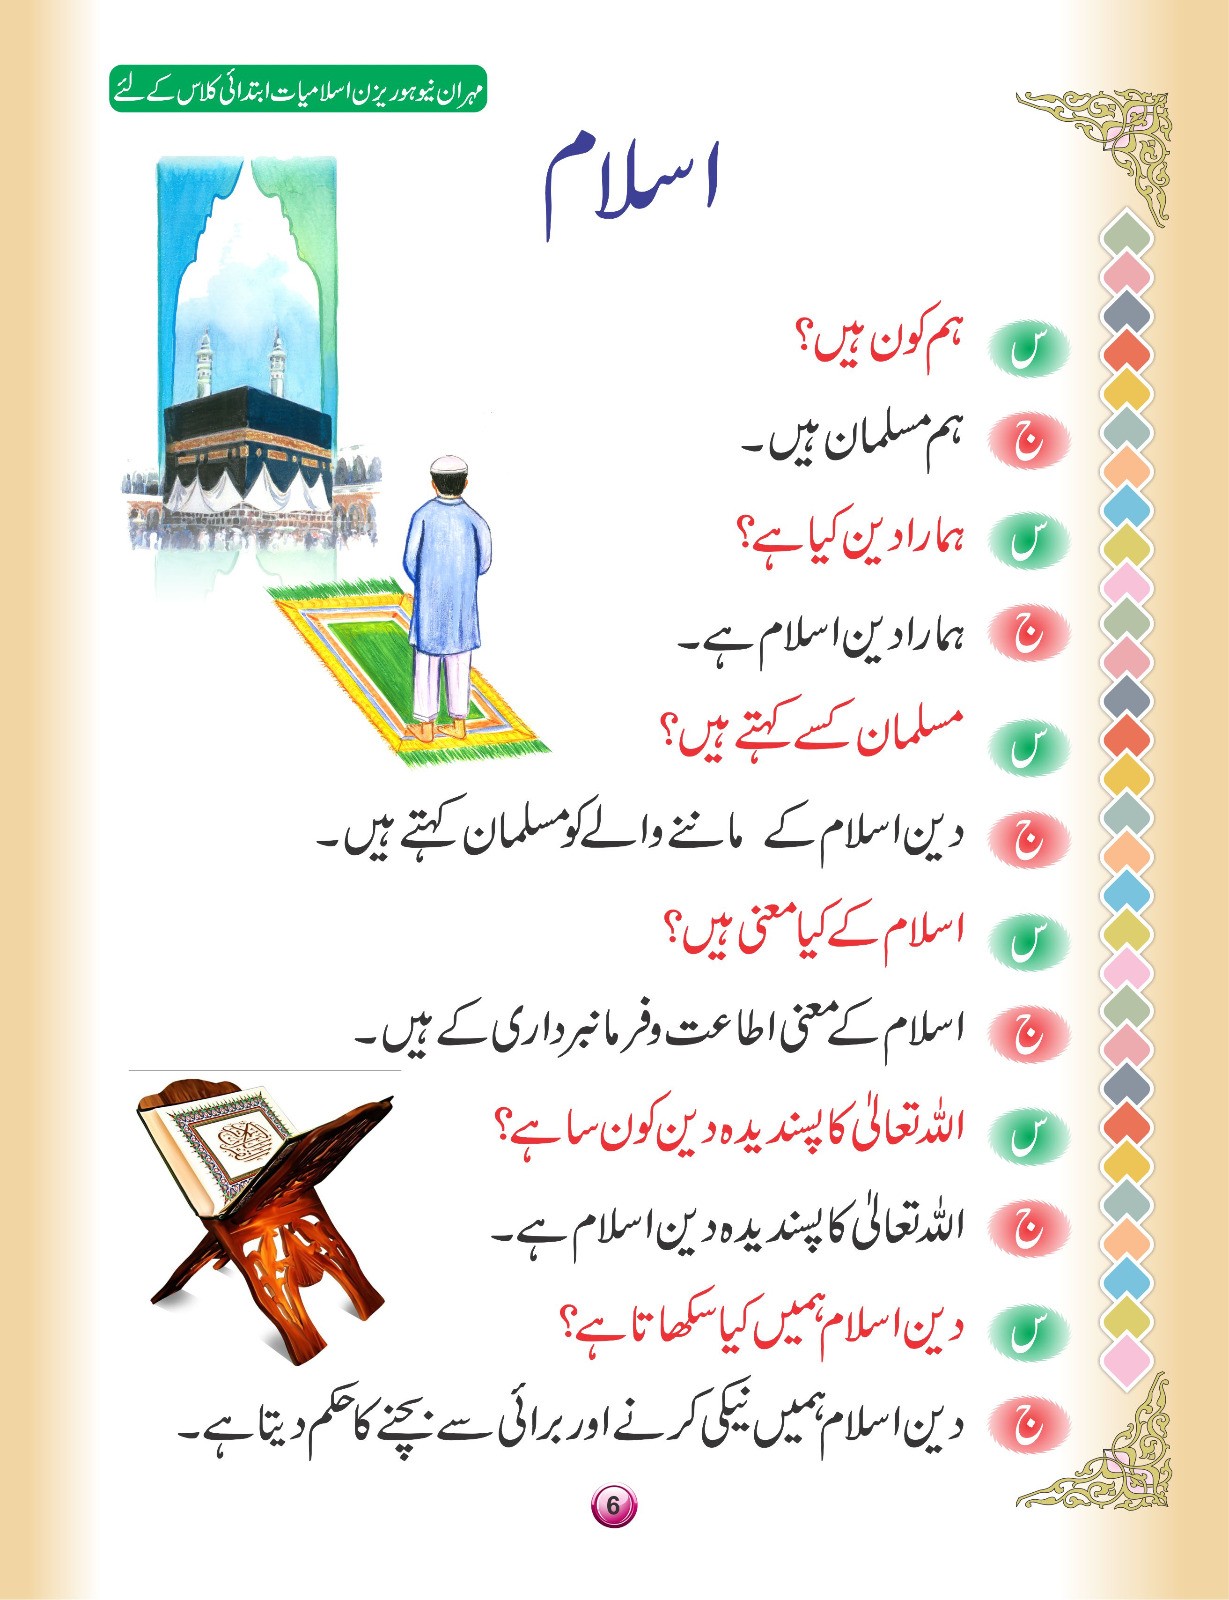 مہران نیو ہوریزن اسلامیات ابتدائی کلاس کے لئے
اسلام
س ہم کون ہیں؟
ج ہم مسلمان ہیں۔
س ہمارا دین کیا ہے؟
ج ہمارا دین اسلام ہے۔
س مسلمان کسے کہتے ہیں؟
ج دین اسلام کے ماننے والے کو مسلمان کہتے ہیں۔
س اسلام کے کیا معنی ہیں؟
ج اسلام کے معنی اطاعت و فرمانبرداری کے ہیں۔
س اللہ تعالیٰ کا پسندیدہ دین کون سا ہے؟
ج اللہ تعالیٰ کا پسندیدہ دین اسلام ہے۔
س دین اسلام ہمیں کیا سکھاتا ہے؟
ج دین اسلام ہمیں نیکی کرنے اور برائی سے بچنے کا حکم دیتا ہے۔
6